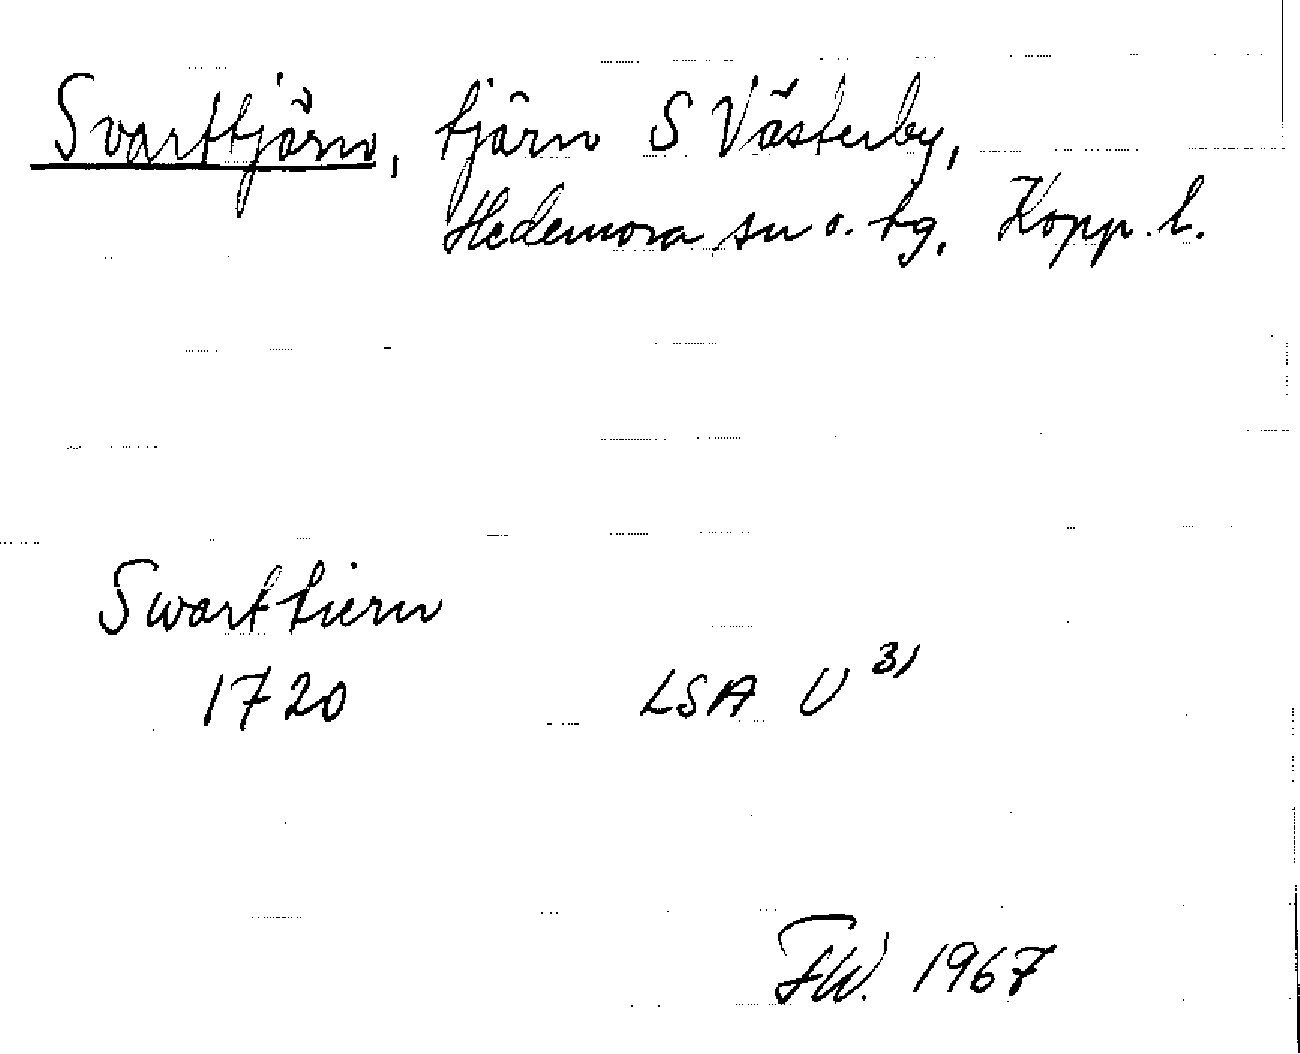 Svarttjärn, tjärn S Västerby,
Hedemora sn o. tg, Kopp. l.
Swarttiern
1720 LSA U 3)
FW. 1967